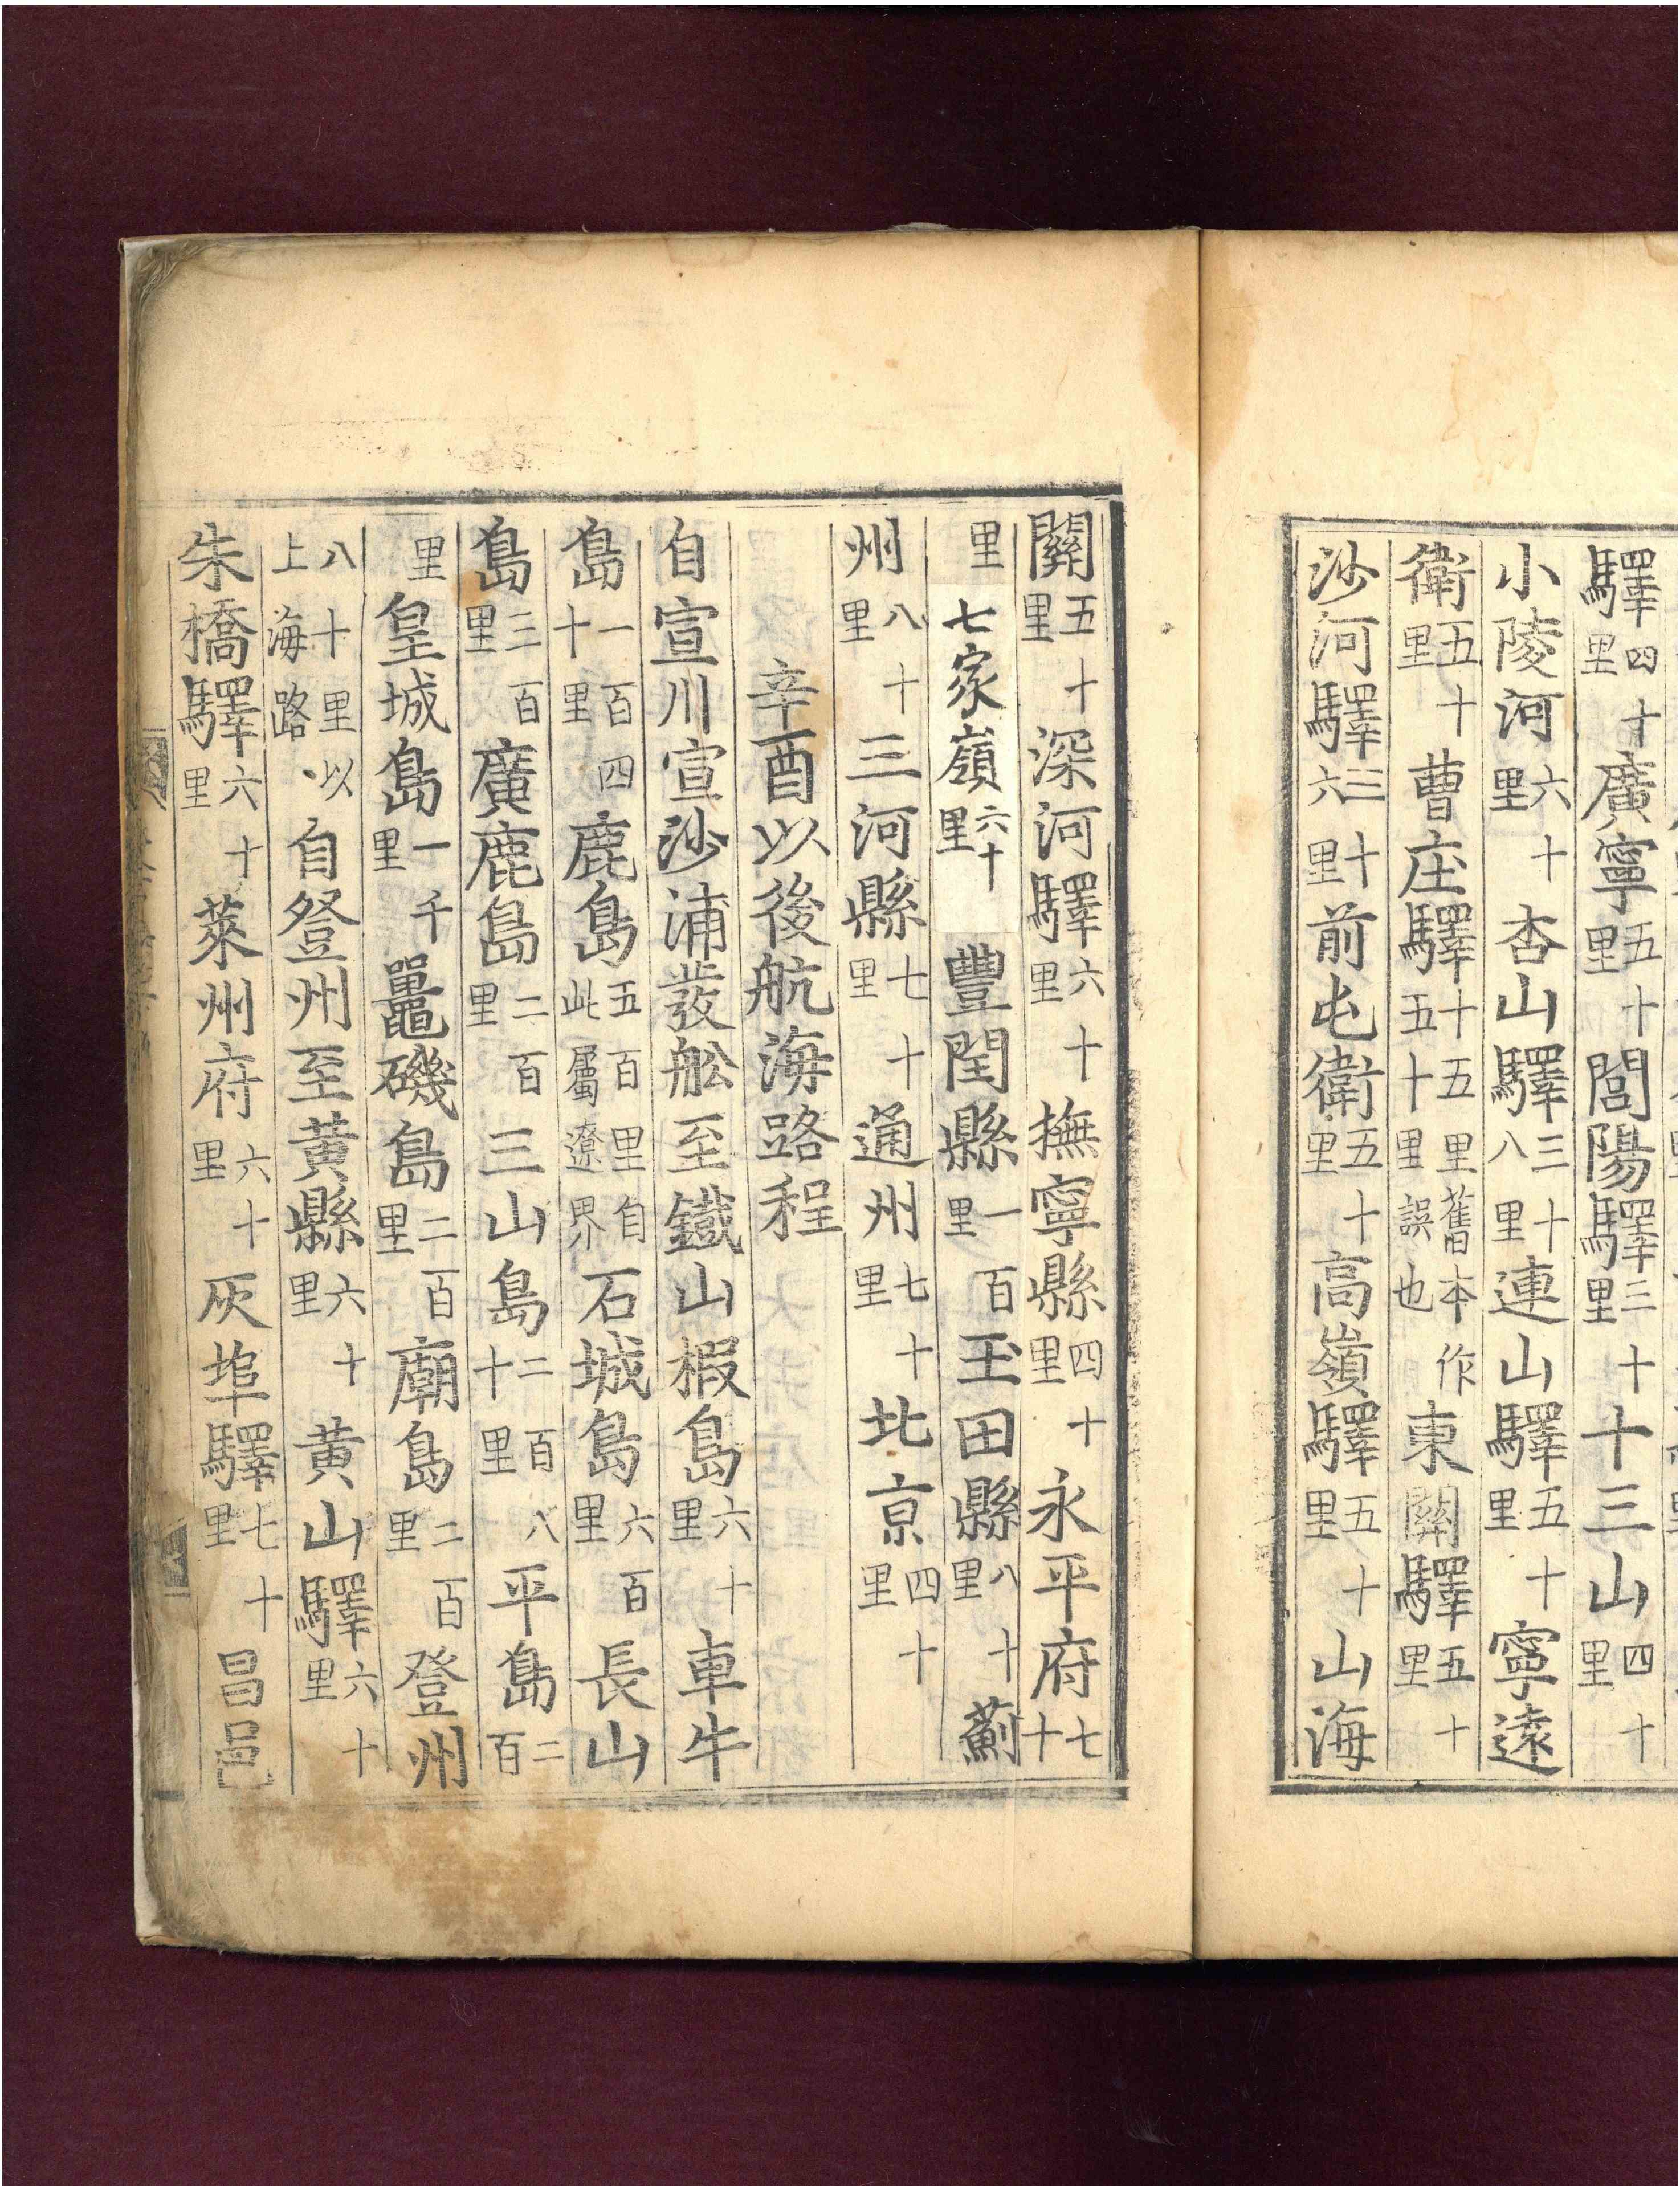 驛四十里廣寧五十里閭陽驛三十里十三山四十里
小陵河六十里杏山驛三十八里連山驛五十里寧遠
衛五十里曹庄驛十五里舊本作五十里誤也東關驛五十里
沙河驛三十六里前屯衛五十里高嶺驛五十里山海
關五十里深河驛六十里撫寧縣四十里永平府七十
里七家嶺六十里豐閏縣一百里玉田縣八十里薊
州八十里三河縣七十里通州七十里北京四十里
辛酉以後航海路程
自宣川宣沙浦發舩至鐵山椵島六十里車牛
島一百四十里鹿島五百里自此屬遼界石城島六百里長山
島三百里廣鹿島二百里三山島二百八十里平島二百
里皇城島一千里鼉磯島二百里廟島二百里登州
八十里以上海路自登州至黃縣六十里黃山驛六十里
朱橋驛六十里萊州府六十里灰埠驛七十里昌邑